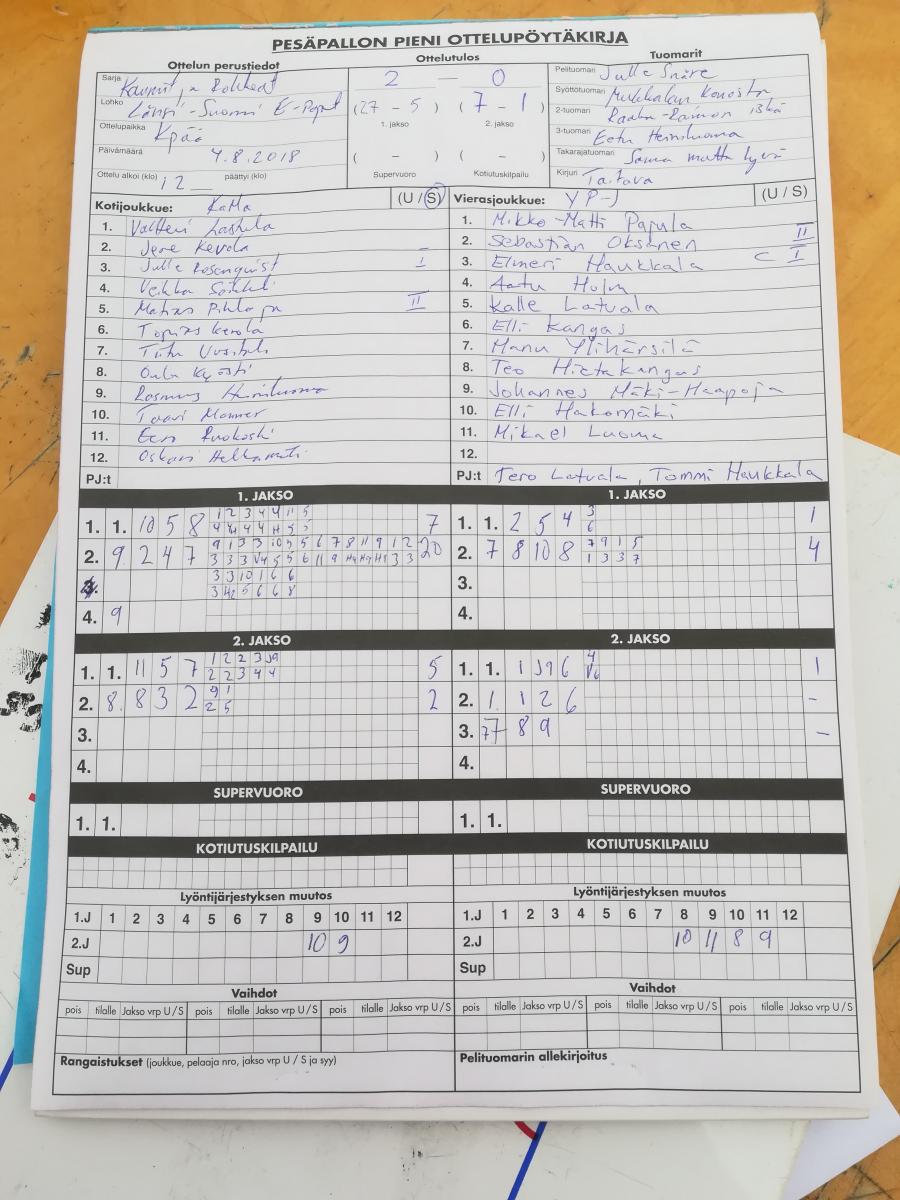 PESÄPALLON PIENI OTTELUPÖYTÄKIRJA
Ottelun perustiedot
Ottelutulos
Tuomarit
Sarja Kauniit ja Rohkeat
Lohko Länsi-Suomi E-Pojat
Ottelupaikka Kpää
Päivämäärä 4.8.2018
Ottelu alkoi (klo) 12 päättyi (klo)
2 — 0
(27 - 5) (7 - 1)
1. jakso 2. jakso
( - ) ( - )
Supervuoro Kotiutuskilpailu
Pelituomari Julle Snäre
Syöttötuomari
2-tuomari
3-tuomari Eetu Heiniluoma
Takarajatuomari Sama mutta hyvä
Kirjuri Taitava
Kotijoukkue: KaMa (U / S)
1. Valtteri
2. Jere Kerola –
3. Julle Rosenqvist I
4. Veikka
5. Matias II
6. Topias Kerola
7.
8.
9. Rasmus Heiniluoma
10. Taavi
11. Eero Ruokoski
12. Oskari
PJ:t
Vierasjoukkue: YP-J (U / S)
1. Mikko-Matti Papula
2. Sebastian Oksanen II
3. Elmeri Haukkala C I
4. Aatu Holm
5. Kalle Latvala
6. Elli Kangas
7. Manu Ylihärsilä
8. Teo Hietakangas
9. Johannes Mäki-Haapoja
10. Elli Hakomäki
11. Mikael Luoma
12.
PJ:t Tero Latvala, Tommi Haukkala
1. JAKSO
1. 1. 10 5 8 7
2. 9 2 4 7 20
4. 9
1. JAKSO
1. 1. 2 5 4 3 1
6
2. 7 8 10 8 7 9 1 5 4
1 3 3 7
3.
4.
2. JAKSO
1. 1. 11 5 7 1 2 2 3 5
2 2 3 4 4
2. 8. 8 3 2 9 1 2
2 5
3.
4.
2. JAKSO
1. 1. 1 6 4 1
2. 1. 1 2 6 -
3. 7 8 9 -
4.
SUPERVUORO
1. 1.
SUPERVUORO
1. 1.
KOTIUTUSKILPAILU
KOTIUTUSKILPAILU
Lyöntijärjestyksen muutos
1.J 1 2 3 4 5 6 7 8 9 10 11 12
2.J 10 9
Sup
Lyöntijärjestyksen muutos
1.J 1 2 3 4 5 6 7 8 9 10 11 12
2.J 10 11 8 9
Sup
Vaihdot
pois tilalle Jakso vrp U / S pois tilalle Jakso vrp U / S pois tilalle Jakso vrp U / S
Vaihdot
pois tilalle Jakso vrp U / S pois tilalle Jakso vrp U / S pois tilalle Jakso vrp U / S
Rangaistukset (joukkue, pelaaja nro, jakso vrp U / S ja syy)
Pelituomarin allekirjoitus